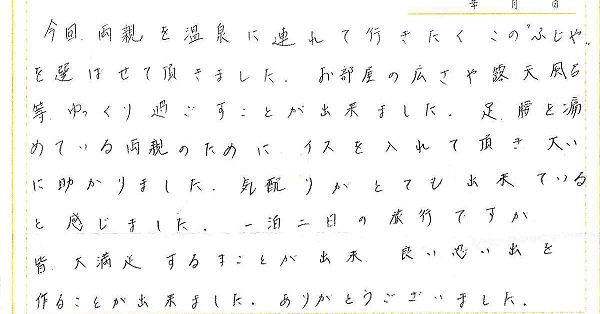 年 月 日
今回、両親を温泉に連れて行きたくこの"ふじや"
を選ばせて頂きました。お部屋の広さや露天風呂
等、ゆっくり過ごすことが出来ました。足、腰を痛
めている両親のために、イスを入れて頂き大い
に助かりました。気配りがとても出来ている
と感じました。一泊二日の旅行ですが
皆、大満足するまことが出来、良い思い出を
作ることが出来ました。ありがとうございました。